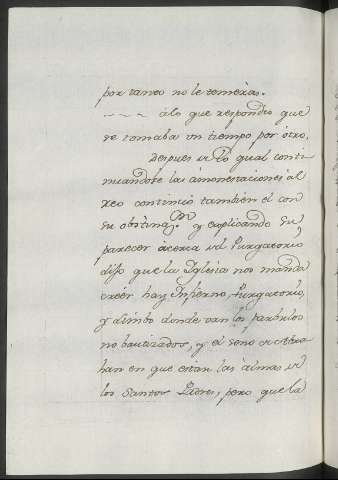 por tanto no le temeras.
~ ~ ~ a lo que respondio que
se tomaba un tiempo por otro,
Despues de lo qual conti
nuandose las amonestaciones al
reo continuó también el con
su obstinaz.on y explicando su
parecer acerca del Purgatorio
dijo que la Iglesia nos manda
creér hay Infierno, Purgatorio,
y Limbo donde van los parbulos
no bautizados, y el seno de Abra
han en que estan las almas de
los Santos Padres, pero que la